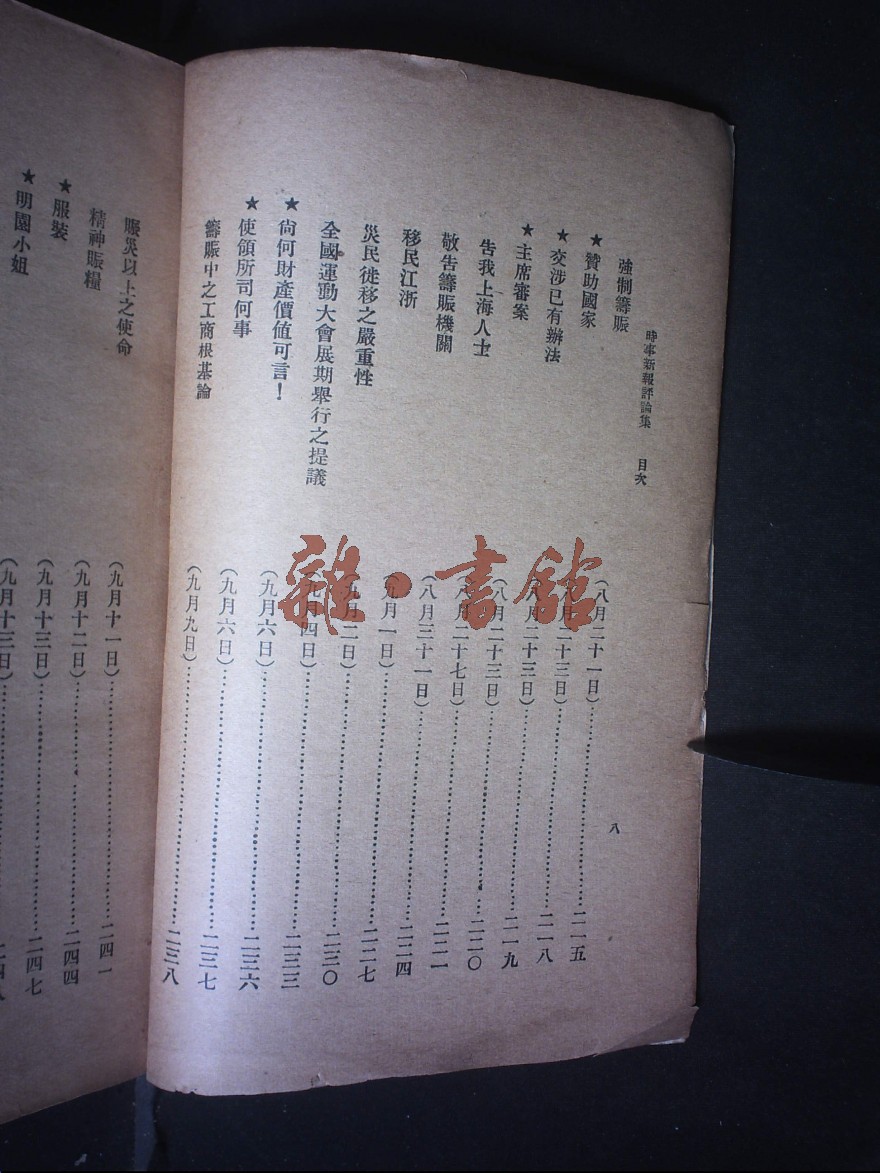 時事新報評論集 目次 八
強制籌賑 (八月二十一日)……二一五
★贊助國家 (八月二十三日)……二一八
★交涉已有辦法 (八月二十三日)……二一九
★主席審案 (八月二十三日)……二二〇
告我上海人士 (八月二十七日)……二二一
敬告籌賑機關 (八月三十一日)……二二四
移民江浙 (九月一日)……二二七
災民徙移之嚴重性 (九月二日)……二三〇
全國運動大會展期舉行之提議 (九月四日)……二三三
★尙何財產價值可言! (九月六日)……二三六
★使領所司何事 (九月六日)……二三七
籌賑中之工商根基論 (九月九日)……二三八
賑災以上之使命 (九月十一日)……二四一
精神賑糧 (九月十二日)……二四四
★服裝 (九月十三日)……二四七
★明園小姐 (九月十三日)……二四八
雜·書館